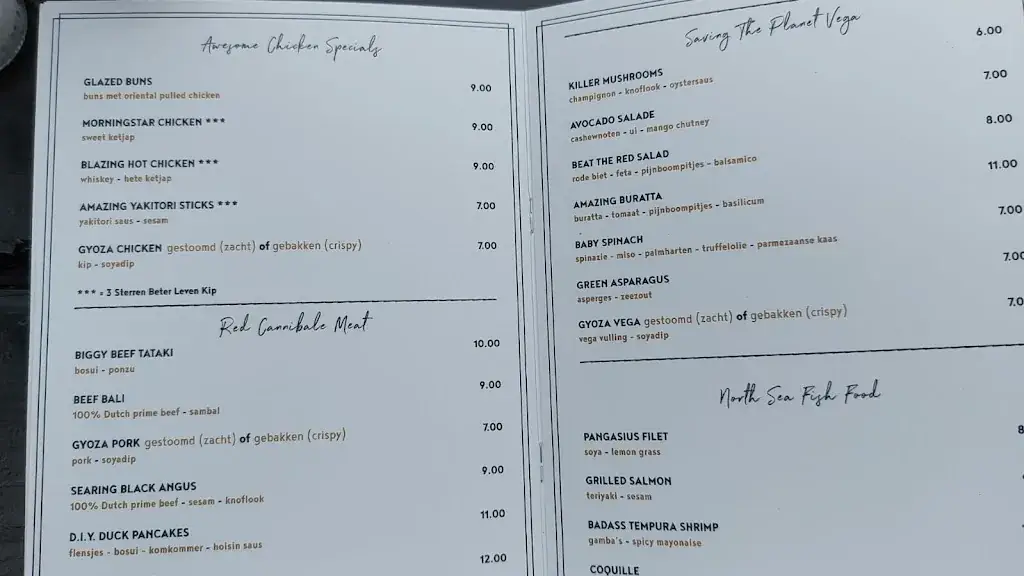 Awesome Chicken Specials
GLAZED BUNS 9.00
buns met oriental pulled chicken
MORNINGSTAR CHICKEN *** 9.00
sweet ketjap
BLAZING HOT CHICKEN *** 9.00
whiskey - hete ketjap
AMAZING YAKITORI STICKS *** 7.00
yakitori saus - sesam
GYOZA CHICKEN gestoomd (zacht) of gebakken (crispy) 7.00
kip - soyadip
*** = 3 Sterren Beter Leven Kip
Red Cannibale Meat
BIGGY BEEF TATAKI 10.00
bosui - ponzu
BEEF BALI 9.00
100% Dutch prime beef - sambal
GYOZA PORK gestoomd (zacht) of gebakken (crispy) 7.00
pork - soyadip
SEARING BLACK ANGUS 9.00
100% Dutch prime beef - sesam - knoflook
D.I.Y. DUCK PANCAKES 11.00
flensjes - bosui - komkommer - hoisin saus
12.00
Saving The Planet Vega
KILLER MUSHROOMS 6.00
champignon - knoflook - oystersaus
AVOCADO SALADE 7.00
cashewnoten - ui - mango chutney
BEAT THE RED SALAD 8.00
rode biet - feta - pijnboompitjes - balsamico
AMAZING BURATTA 11.00
buratta - tomaat - pijnboompitjes - basilicum
BABY SPINACH 7.00
spinazie - miso - palmharten - truffelolie - parmezaanse kaas
GREEN ASPARAGUS 7.00
asperges - zeezout
GYOZA VEGA gestoomd (zacht) of gebakken (crispy) 7.0
vega vulling - soyadip
North Sea Fish Food
PANGASIUS FILET 8
soya - lemon grass
GRILLED SALMON
teriyaki - sesam
BADASS TEMPURA SHRIMP
gamba's - spicy mayonaise
COQUILLE